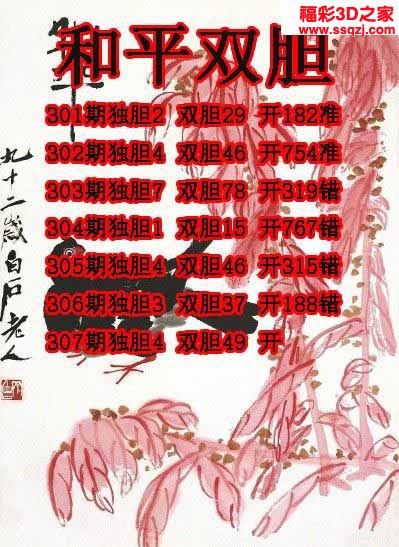 福彩3D之家
www.ssqzj.com
和平双胆
301期独胆2 双胆29 开182准
302期独胆4 双胆46 开754准
303期独胆7 双胆78 开319错
304期独胆1 双胆15 开767错
305期独胆4 双胆46 开315错
306期独胆3 双胆37 开188错
307期独胆4 双胆49 开
九十二岁白石老人